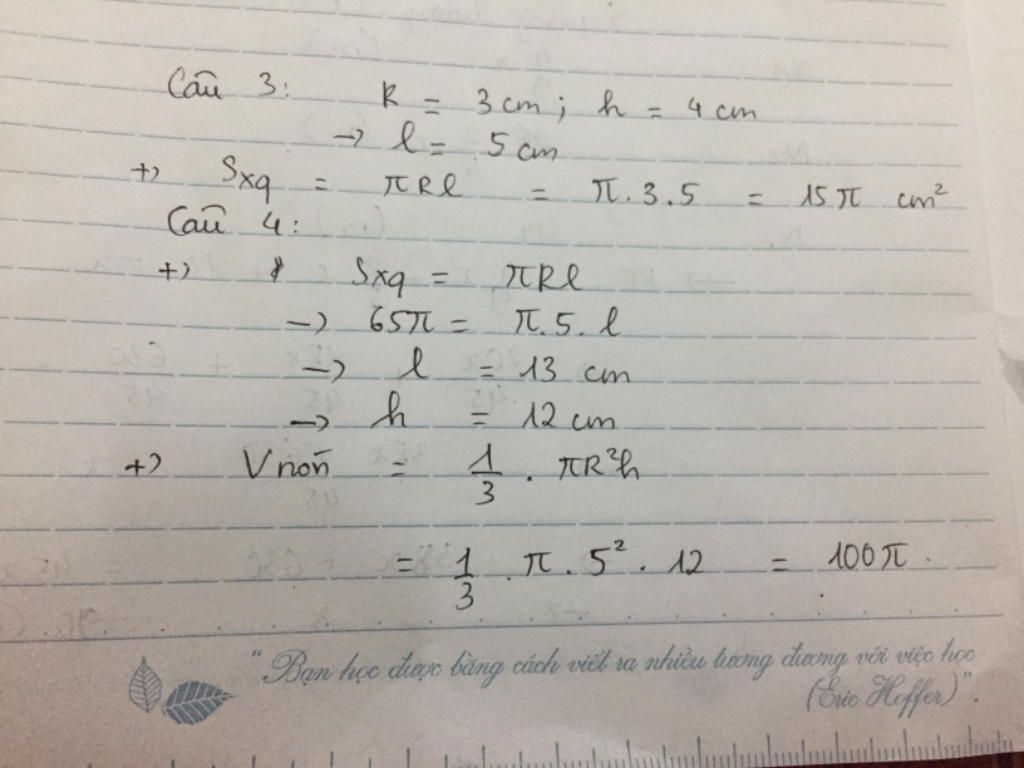 Câu 3: R = 3 cm; h = 4 cm
→ l = 5 cm
+) Sxq = πRl = π.3.5 = 15π cm²
Câu 4:
+) Sxq = πRl
→ 65π = π.5.l
→ l = 13 cm
→ h = 12 cm
+) Vnón = 1/3 . πR²h
= 1/3 . π . 5² . 12 = 100π.
“Bạn học được bằng cách viết ra nhiều tương đương với việc học
(Eric Hoffer)”.